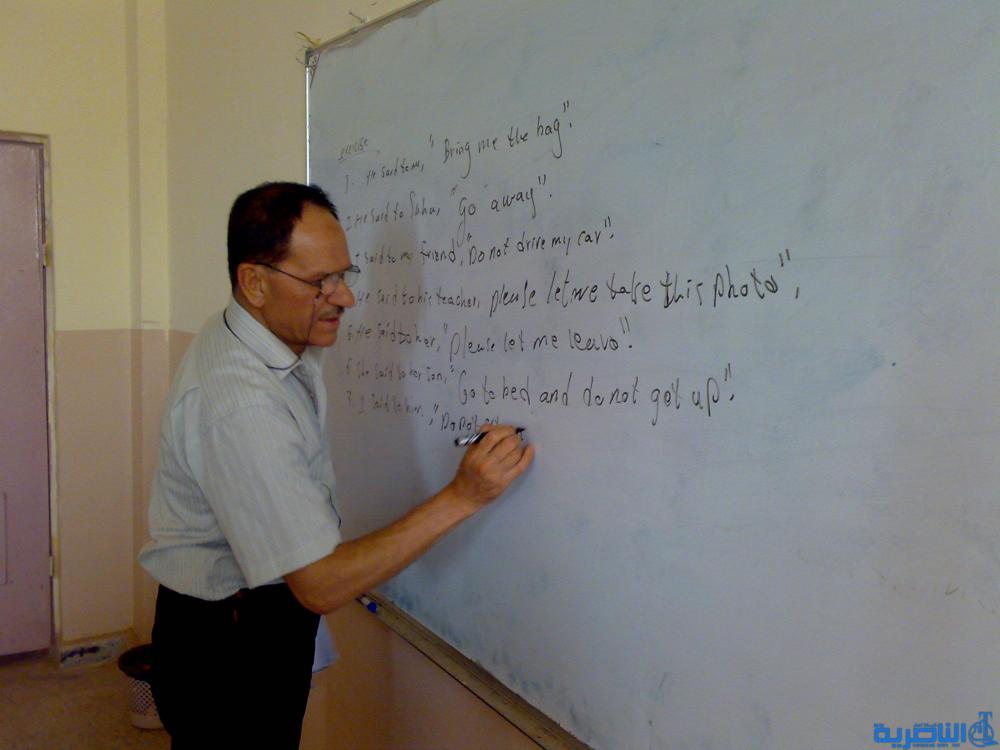 exercise
1. He said to me, "Bring me the bag".
2. He said to Suha, "Go away".
I said to my friend, "Do not drive my car".
He said to his teacher, please let me take this photo",
5. He said to her, "please let me leave".
6. She said to her son, "Go to bed and do not get up".
7. I said to him, "Do not
الناصرية